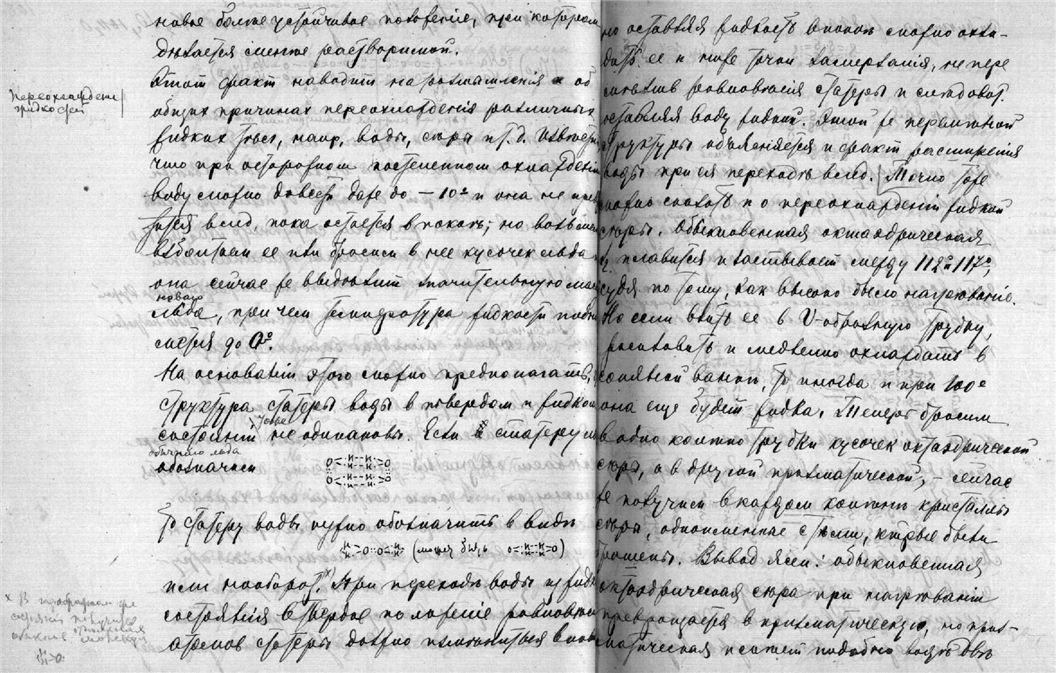 новое более устойчивое положение, при котором
делается менее растворимой.
Этот факт наводит на размышления и об
общих причинах переохлаждения различных
жидких тел, напр. воды, серы и т.д. Известно,
что при осторожном постепенном охлаждении
воду можно довести даже до – 10° и она не
в лед, пока остается в покое; но
ее или бросим в нее кусочек льда
она сейчас же выделит значительную
новую
льда, при чем температура жидкости
до 0°.
На основании этого можно предполагать,
структура статеры воды в твердом и жидком
состоянии не одинаковы. Если статеру
обычного льда
обозначим
то статеру воды нужно обозначить в виде
(может быть
или наоборот. При переходе воды из
состояния в твердое положение равновесия
атомов статеры должно измениться
Переохлаждение
жидкостей
но оставляя жидкость в покое можно охла-
дить ее и ниже точки замерзания, не
равновесия статеры и
оставляя воду жидкой. Этой же переменной
структуры объясняется и факт расширения
воды при ея переходе в лед. Точно тоже
можно сказать и о переохлаждении жидкой
серы. Обыкновенная октаэдрическая
плавится и застывает между 112° и 117°,
судя по тому, как высоко было нагревание.
Но если взять ее в U-образную трубку,
расплавить и медленно охлаждать в
соляной ванне, то иногда и при 100°
она еще будет жидка. Теперь бросим
в одно колено трубки кусочек октаэдрической
серы, а в другой призматической, – сейчас
же получим в каждом колене кристаллы
серы, одноименные с теми, которые были
брошены. Вывод ясен: обыкновенная
октаэдрическая сера при нагревании
превращается в призматическую, но приз-
матическая может подобно воде